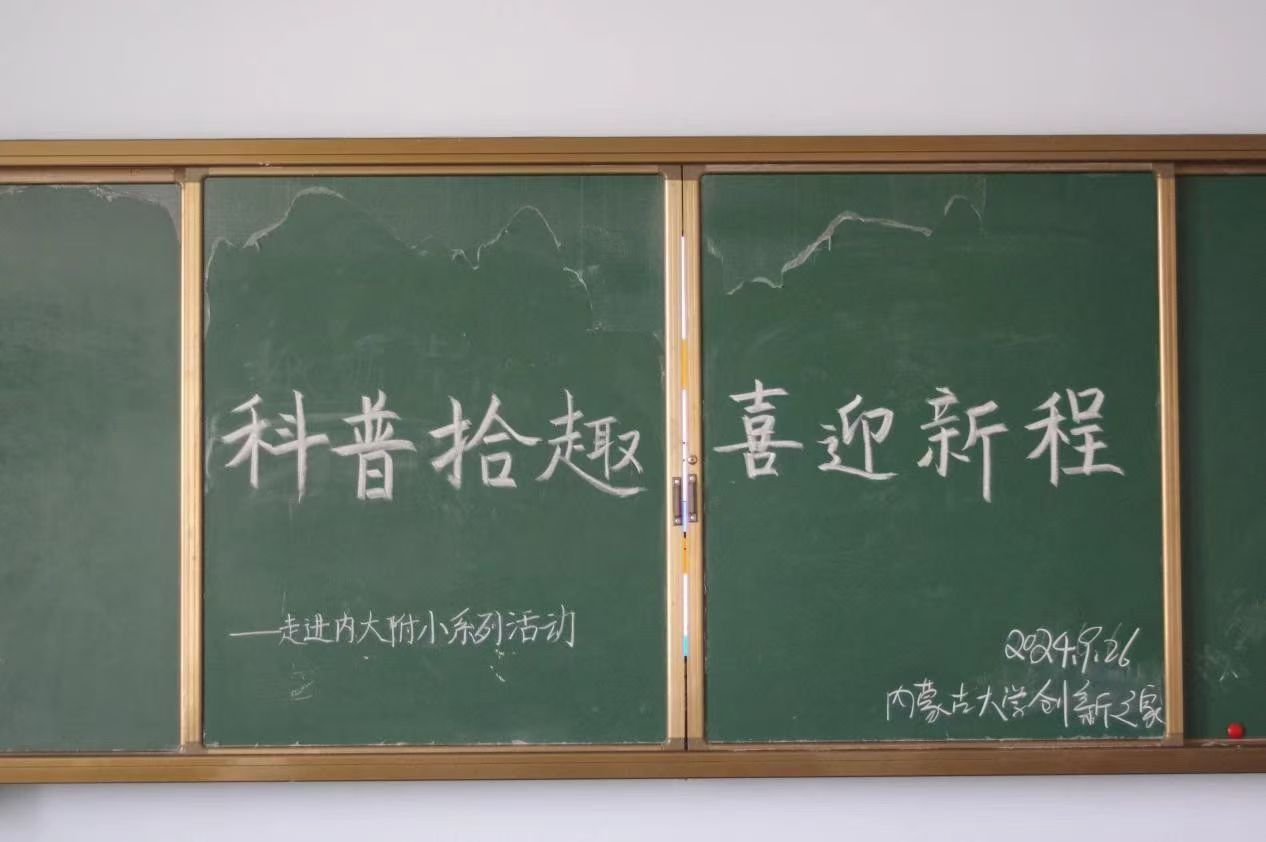 科普拾趣 喜迎新程
——走进内大附小系列活动
2024.9.26
内蒙古大学创新之家